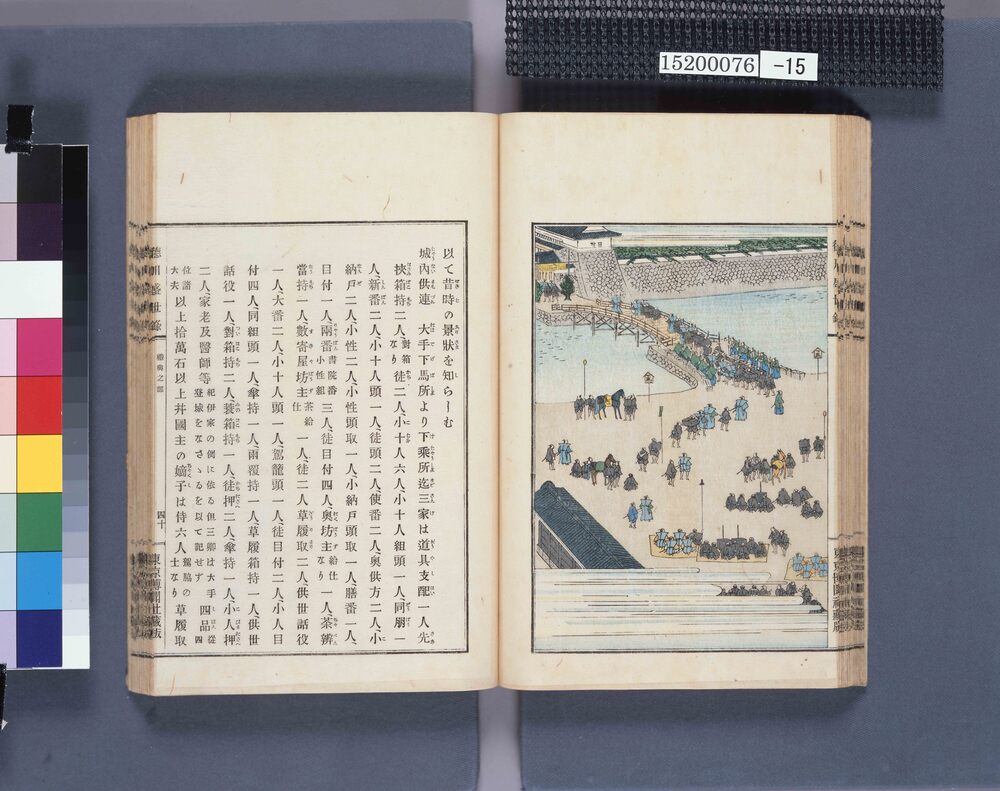 15200076 -15
以て昔時の景狀を知らしむ
城內供連 大手下馬所より下乘所迄三家は道具支配一人先
挾箱持二人對箱なり徒二人、小十人六人、小十人組頭一人、同朋一
人、新番二人、小十人頭一人、徒頭二人、使番二人、奧供方二人、小
納戶二人、小性二人、小性頭取一人、小納戶頭取一人、膳番一人、
目付一人、兩番書院番小性組三人、徒目付四人、奧坊主給仕なり一人、茶辨
當持一人、數寄屋坊主茶給仕一人、徒二人、草履取二人、供世話役
一人、大番二人、小十人頭一人、駕籠頭一人、徒目付二人、小人目
付四人、同組頭一人、傘持一人、雨覆持一人、草履箱持一人、供世
話役一人、對箱持二人、蓑箱持一人、徒押二人、傘持一人、小人押
二人、家老及醫師等紀伊家の例に依る但三卿は大手登城をなさゝるを以て記せず四品從四
位諸大夫以上拾萬石以上幷國主の嫡子は侍六人駕脇の士なり草履取
德川盛世錄
禮典之部
四十
東京博聞社藏版